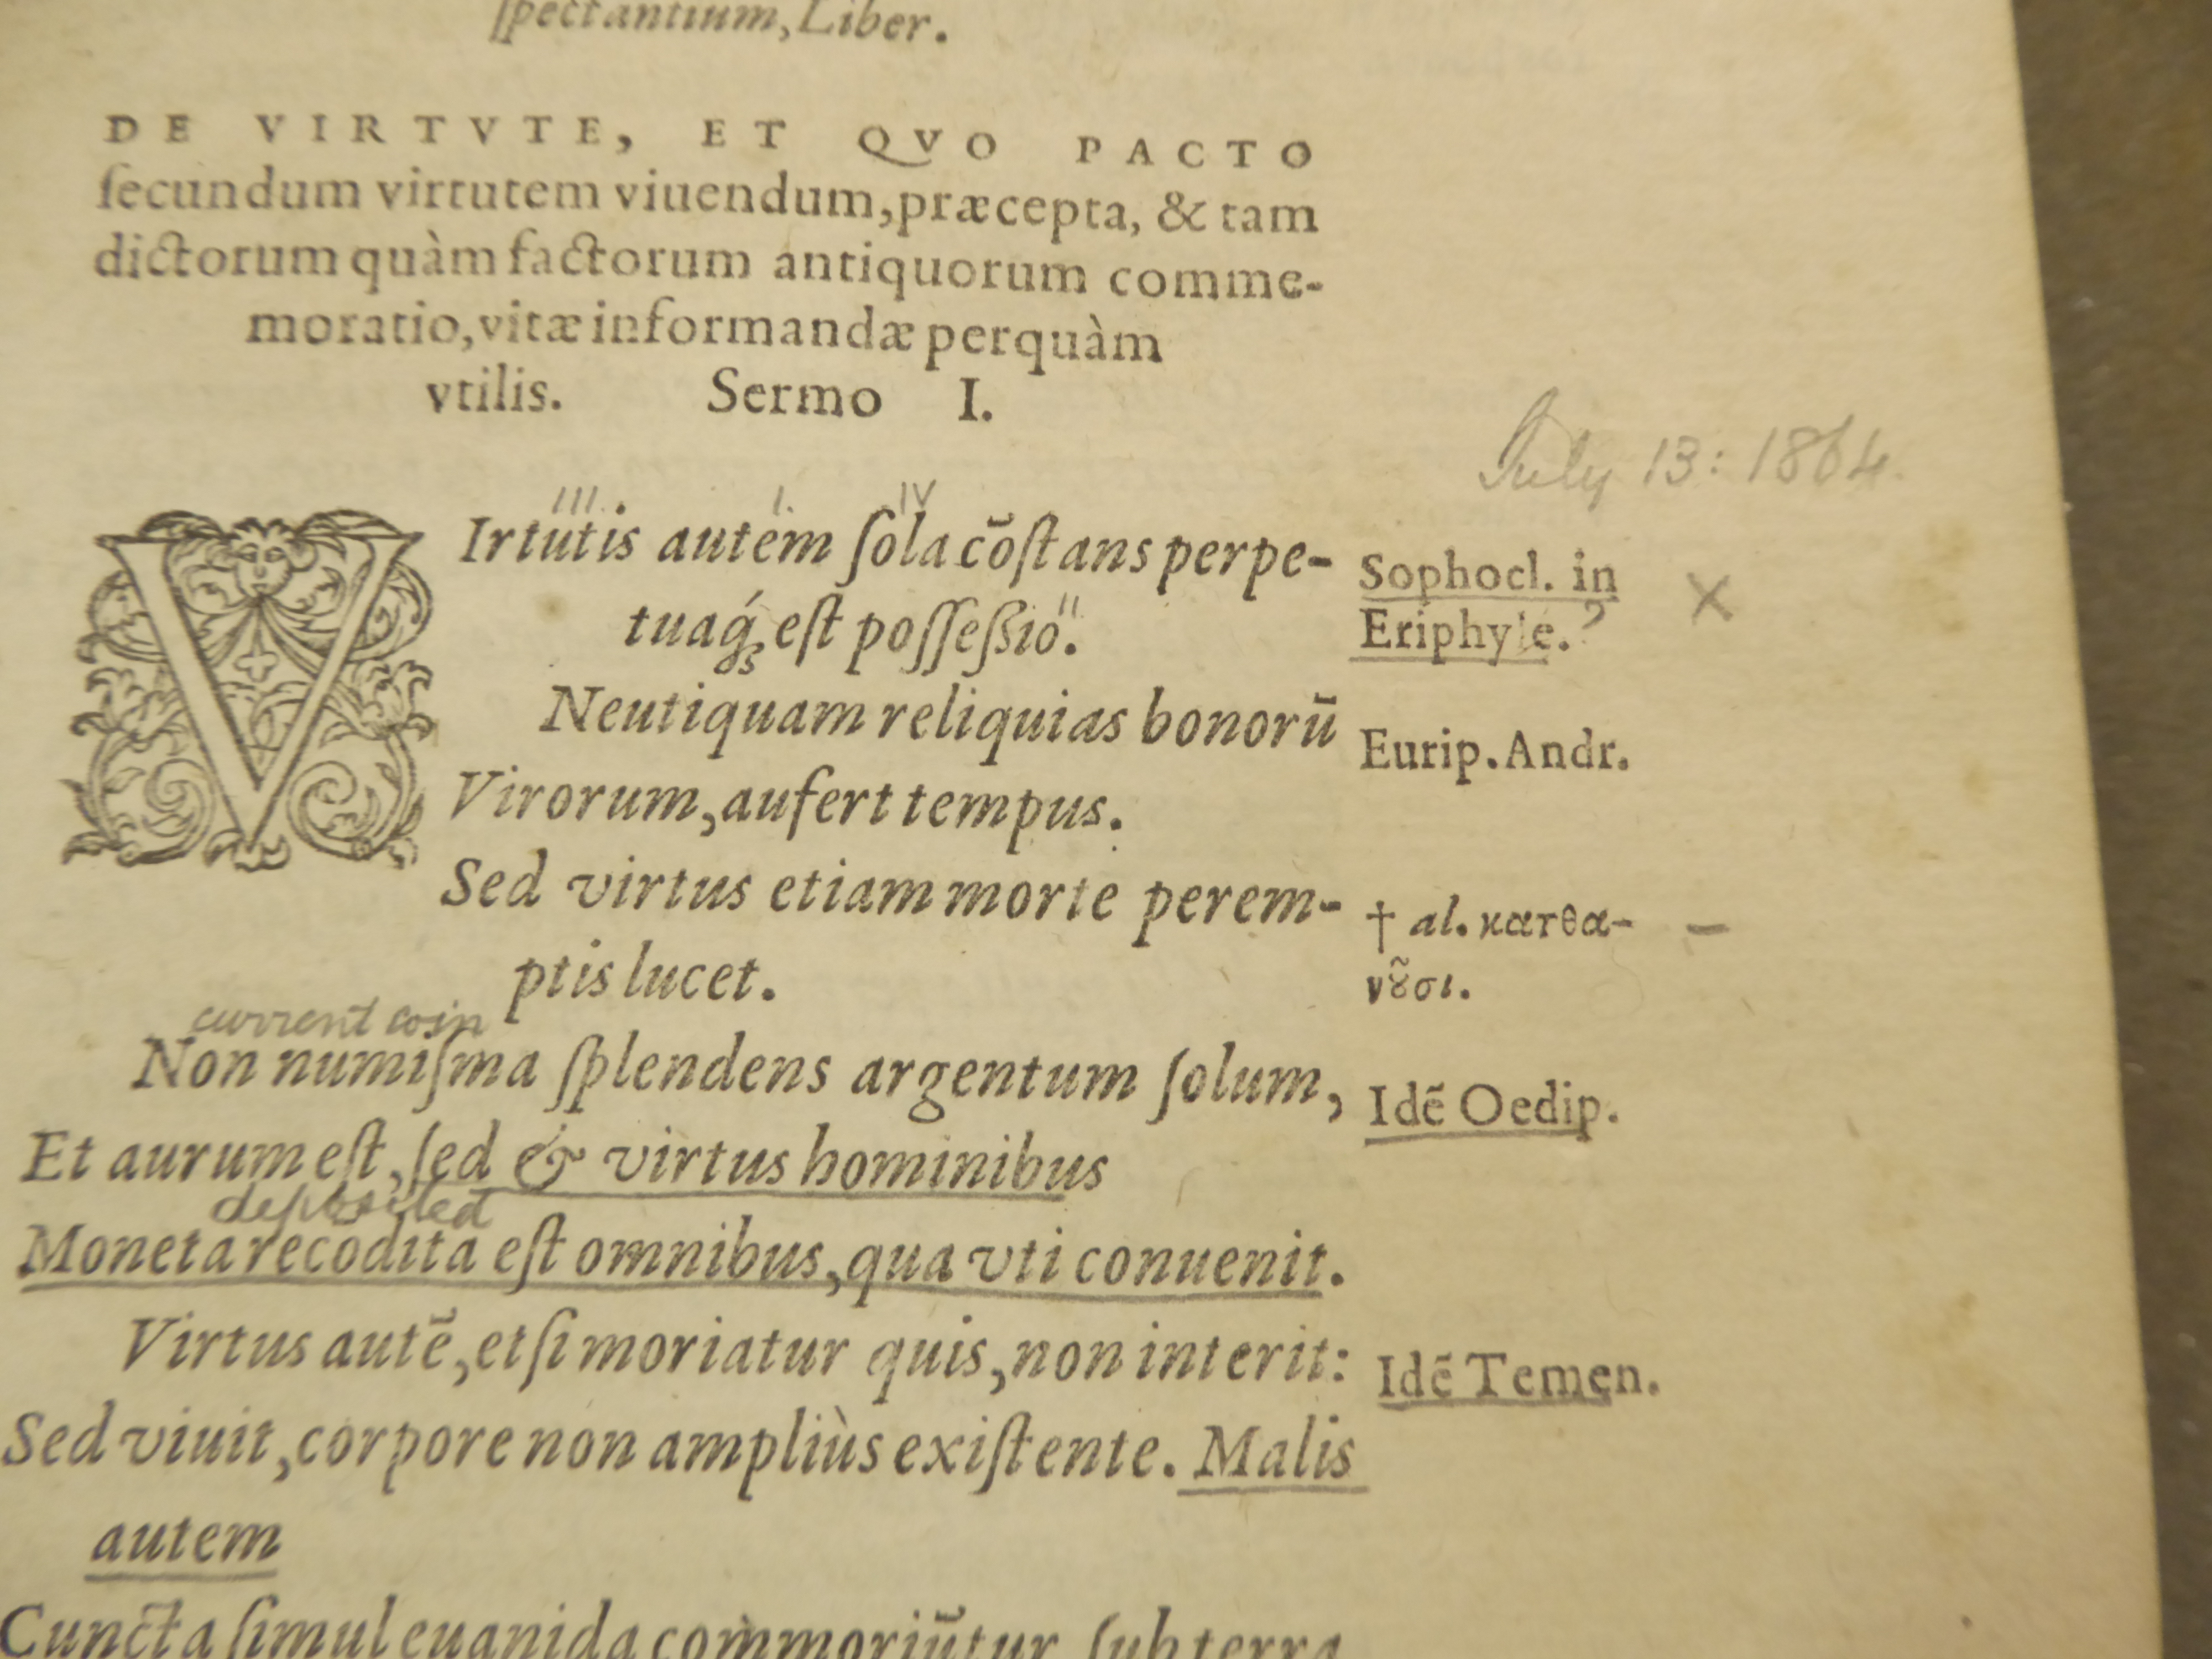 spectantium, Liber.
DE VIRTVTE, ET QVO PACTO
ſecundum virtutem viuendum, præcepta, & tam
dictorum quàm factorum antiquorum comme-
moratio, vitæ informandæ perquàm
vtilis. Sermo I.
July 13: 1864.
III I. IV
VIrtutis autem ſola cõſtans perpe-
Sophocl. in X
II
tuaq́ꝫ eſt poſſeßio.
Eriphyle. ?
Neutiquam reliquias bonorũ
Eurip. Andr.
Virorum, aufert tempus.
Sed virtus etiam morte perem-
† al. κατθα- –
ptis lucet.
νȣ͂σι.
current coin
Non numiſma ſplendens argentum ſolum,
Idẽ Oedip.
Et aurum eſt, ſed & virtus hominibus
deposited
Moneta recodita eſt omnibus, qua vti conuenit.
Virtus autẽ, etſi moriatur quis, non interit:
Idẽ Temen.
Sed viuit, corpore non ampliùs exiſtente. Malis
autem
Cuncta ſimul euanida commoriũtur ſub terra